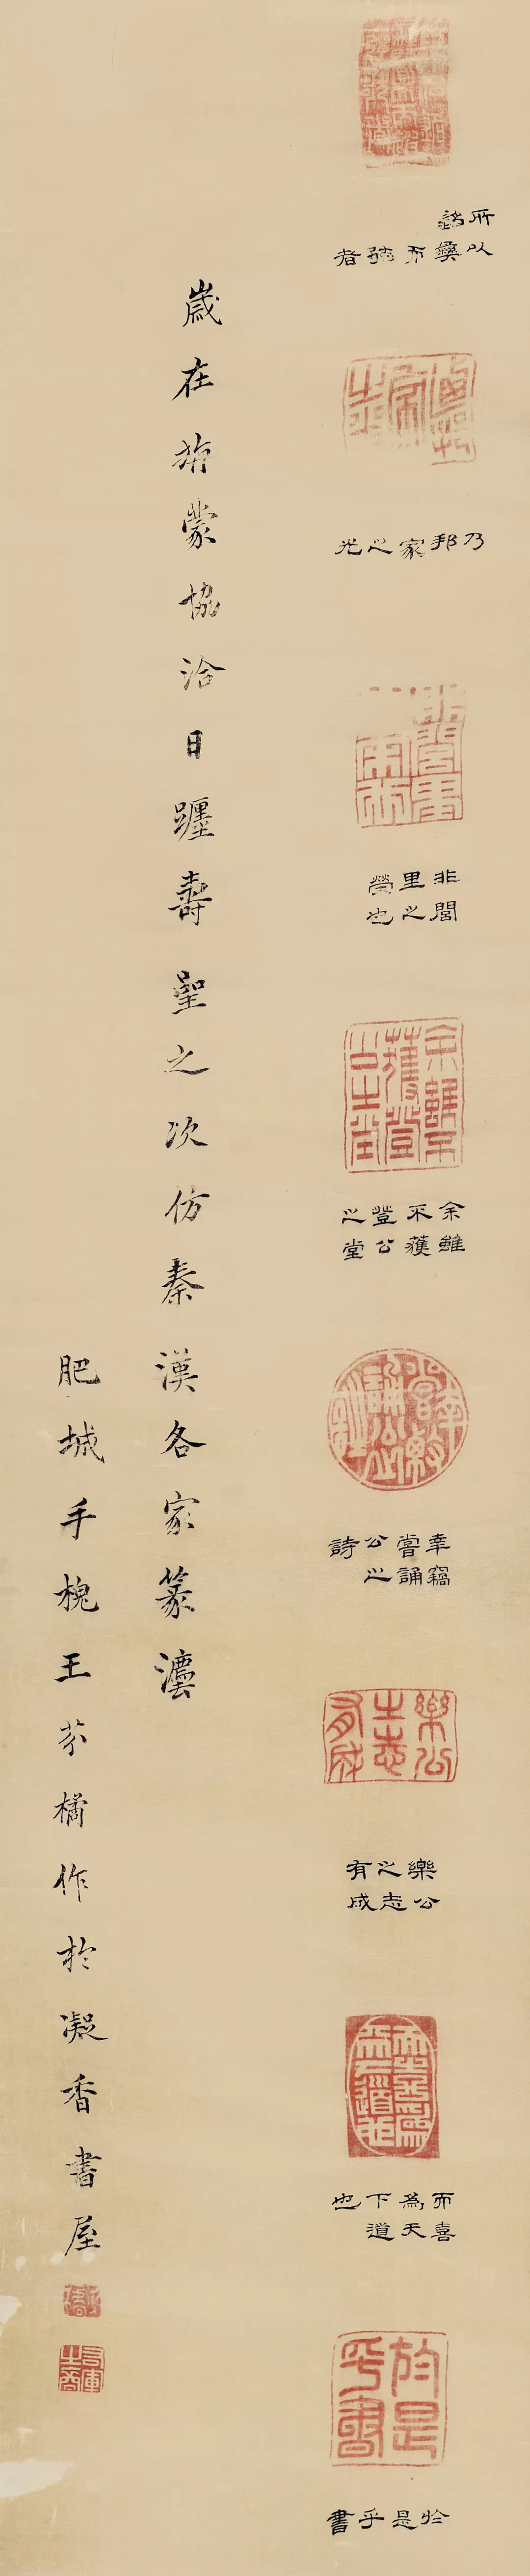 所以
彝
而
者
乃邦家之光
非閭
里之
榮也
余雖
不獲
登公
之堂
幸竊
嘗誦
公之
詩
樂公
之志
有成
而喜
為天
下道
也
於是乎書
歲在旃蒙協洽日躔壽星之次仿秦漢各家篆灋
肥城手槐王芬橘作於凝香書屋